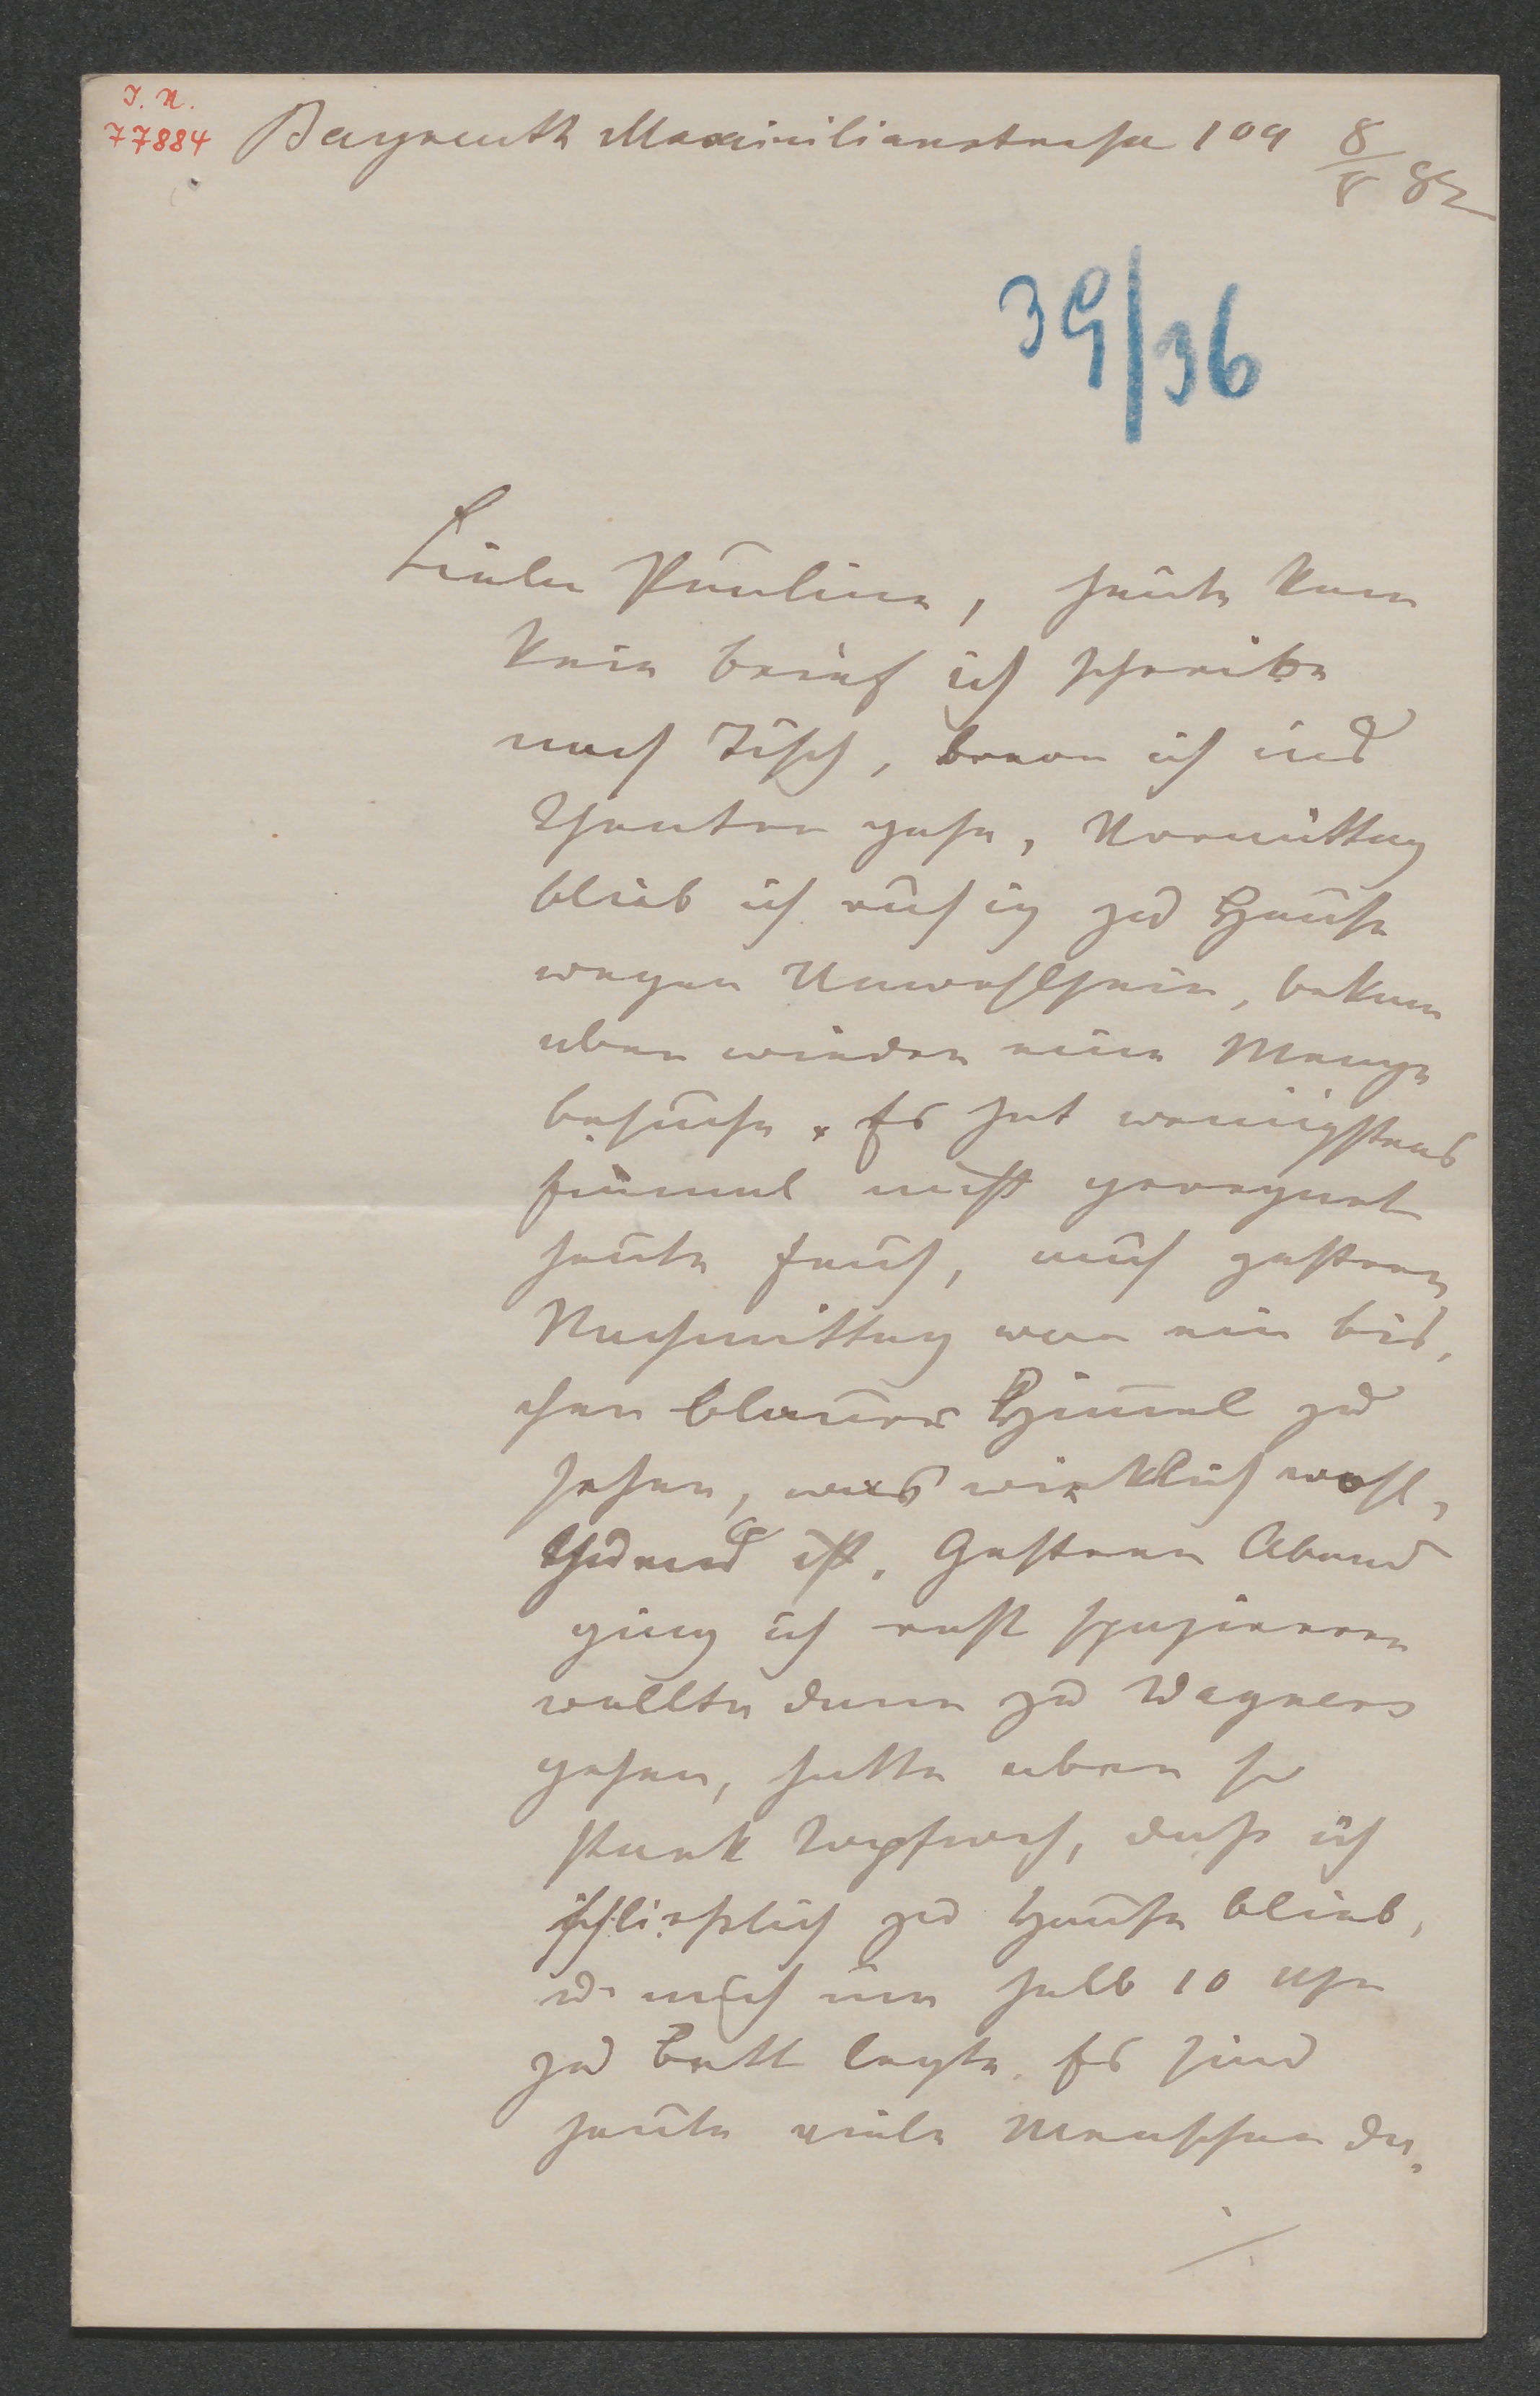 I. N.
77884
Bayreuth Maximilianstrasse 109 8/8 82
39/36
Liebe Pauline, heute kam
kein brief ich schreibe
nach Tisch, bevor ich ins
Theater gehe, Vormittag
blieb ich ruhig zu Hause
wegen Unwohlsein, bekam
aber wieder eine Menge
besuche. Es hat wenigstens
einmal nicht geregnet
heute früh, auch gestern
Nachmittag war ein bis,
chen blauer Himel zu
sehen, was wirklich wohl,
thuend ist. Gestern Abend
ging ich erst spazieren
wollte dann zu Wagners
gehen, hatte aber so
stark Kopfweh, dass ich
schliesslich zu Hause blieb,
u. mich um halb 10 Uhr
zu bett legte. Es sind
heute viele Menschen da,